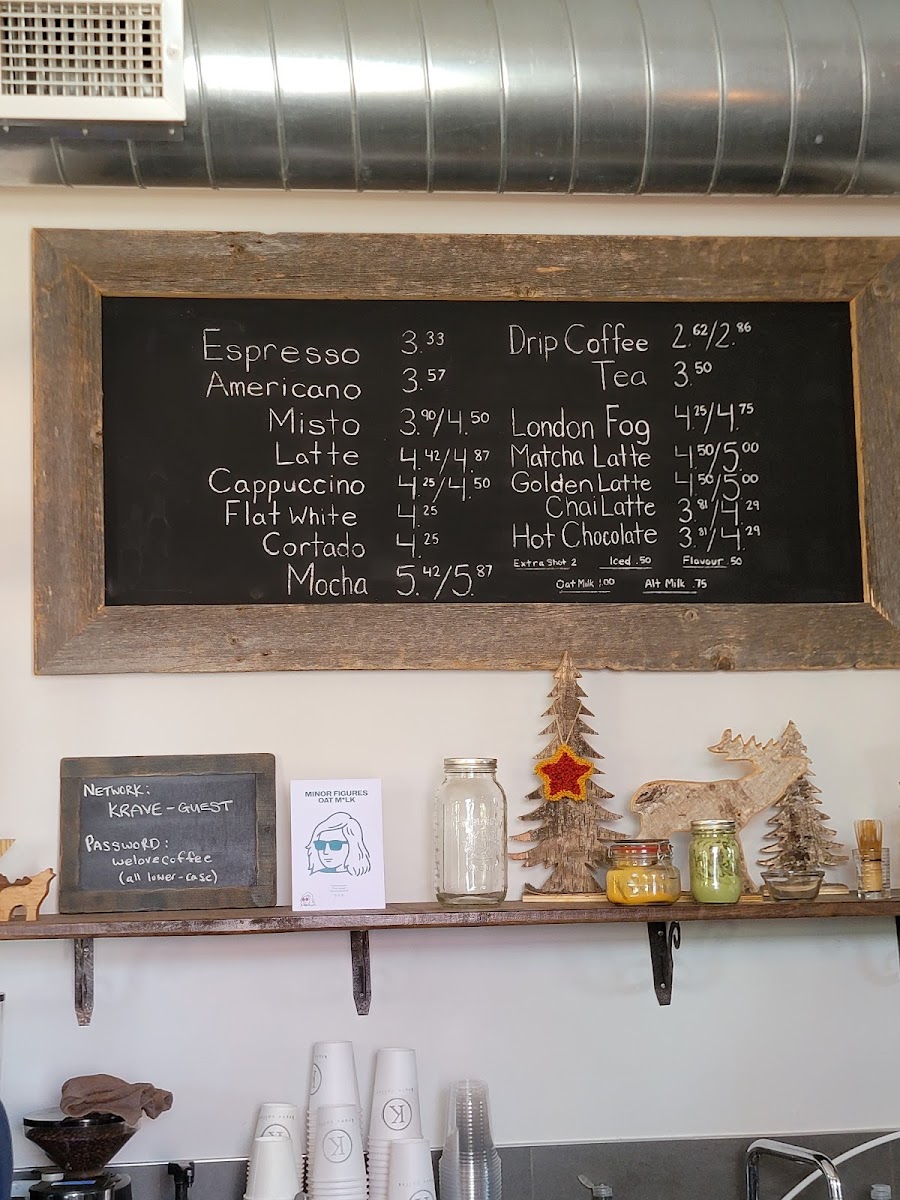 Espresso 3.33
Americano 3.57
Misto 3.90/4.50
Latte 4.42/4.87
Cappuccino 4.25/4.50
Flat White 4.25
Cortado 4.25
Mocha 5.42/5.87
Drip Coffee 2.62/2.86
Tea 3.50
London Fog 4.25/4.75
Matcha Latte 4.50/5.00
Golden Latte 4.50/5.00
Chai Latte 3.81/4.29
Hot Chocolate 3.81/4.29
Extra Shot 2 Iced .50 Flavour .50
Oat Milk 1.00 Alt Milk .75
NETWORK:
KRAVE-GUEST
PASSWORD:
welovecoffee
(all lower-case)
MINOR FIGURES
OAT M*LK
K
K
K